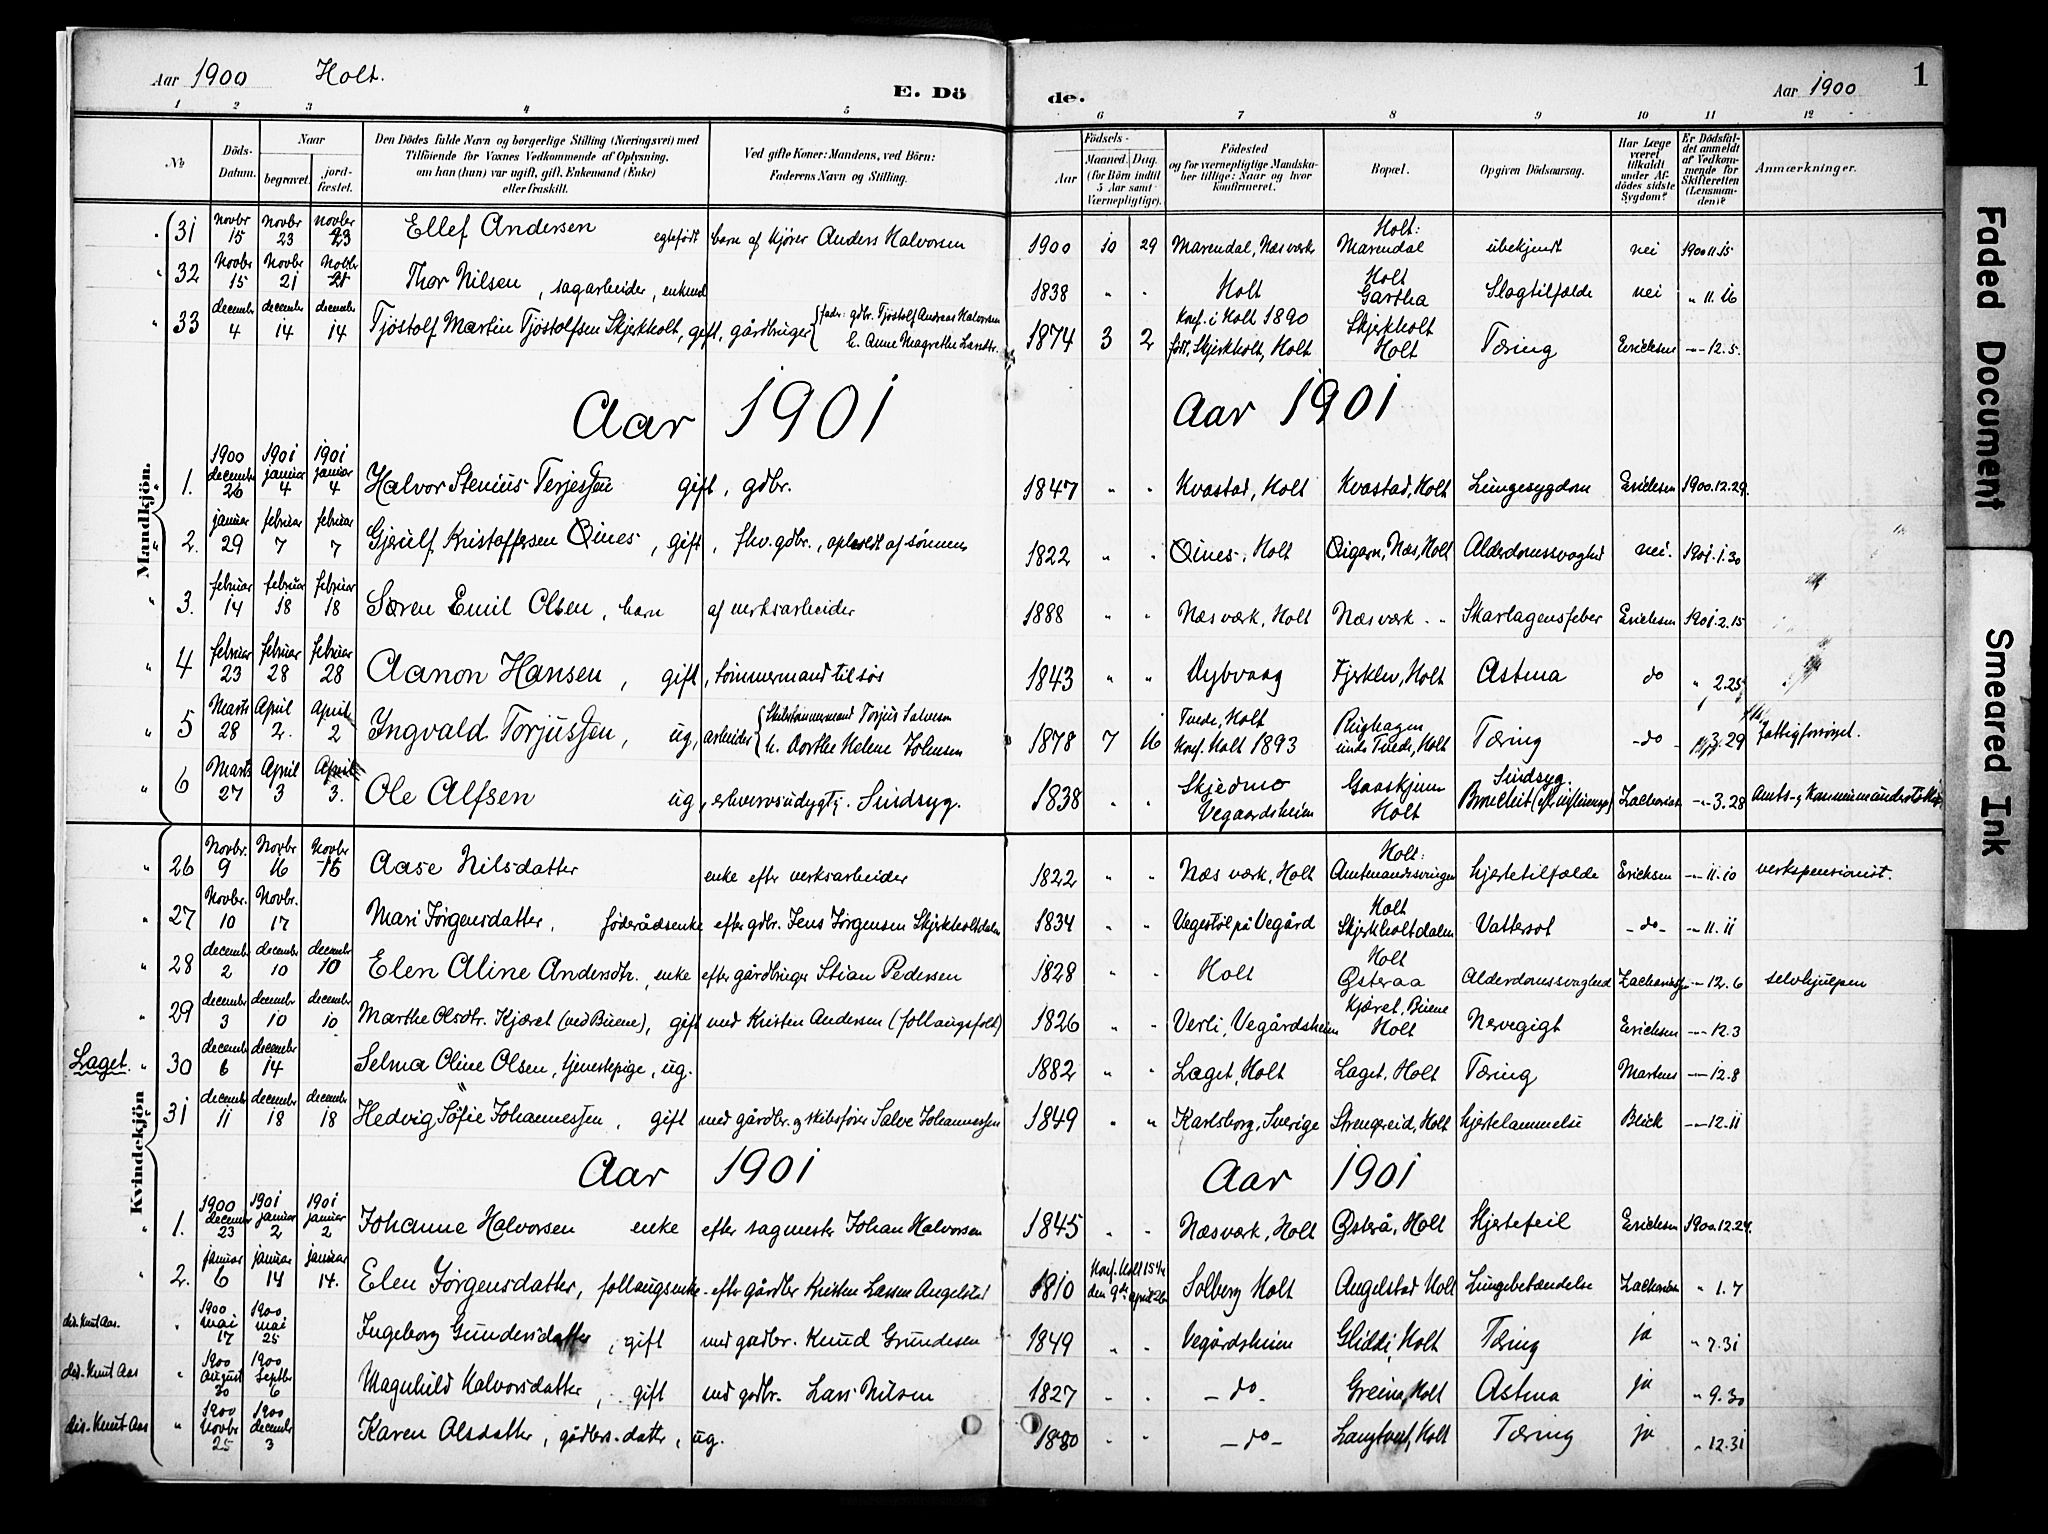 Aar 1900 Holt.
E. Dö de.
Aar 1900
1
1 2 3 4 5 6 7 8 9 10 11 12
No
Döds-Datum.
Naar
begravet.
jord-fæstet.
Den Dödes fulde Navn og borgerlige Stilling (Næringsvei) med
Tilföiende for Voxnes Vedkommende af Oplysning,
om han (hun) var ugift, gift, Enkemand (Enke)
eller fraskilt.
Ved gifte Koner: Mandens, ved Börn:
Faderens Navn og Stilling.
Födsels-
Aar
Maaned. Dag.
(for Börn indtil
5 Aar samt
Værnepligtige).
Födested
og for værnepligtige Mandska-
ber tillige: Naar og hvor
konfirmeret.
Bopæl.
Opgiven Dödsaarsag.
Har Læge
været
tilkaldt
under Af-
dödes sidste
Sygdom?
Er Dödsfal-
det anmeldt
af Vedkom-
mende for
Skifteretten
(Lensman-
den)?
Anmærkninger.
Mandkjön.
31 Novbr 15 Novbr 23 Novbr 23 Ellef Andersen egtefødt barn af kjører Anders Halvorsen 1900 10 29 Marendal, Næs værk Holt: Marendal ubekjendt nei 1900 11.15
32 Novbr 15 Novbr 21 Novbr 21 Thor Nilsen, sagarbeider, enkmd 1838 " " Holt Holt Gartha Slagtilfælde nei " 11.16
33 december 4 december 14 december 14 Tjøstolf Martin Tjøstolfsen Skjerkholt, gift, gårdbruger {fader: gdbr. Tjøstolf Andreas Halvorsen & Anne Magrethe Larsdtr. 1874 3 2 Konf. i Holt 1890 født, Skjerkholt, Holt Skjerkholt Holt Tæring Ericksen -"- 12.5.
Aar 1901 Aar 1901
1. 1900 december 26 1901 januar 4 1901 januar 4 Halvor Stenius Terjessen gift, gdbr. 1847 " " Kvastad, Holt Kvastad, Holt Lungesygdom Ericksen 1900.12.29.
2. januar 29 februar 7 februar 7 Gjerulf Kristoffersen Oines, gift, fhv. gdbr., opholdt af sønnen 1822 " " Oines, Holt Næs, Holt Alderdomssvaghed nei. 1901.1.30
3. februar 14 februar 18 februar 18 Søren Emil Olsen, barn af verksarbeider 1888 " " Næs værk, Holt Næs værk - " Skarlagensfeber Ericksen 1901.2.15
4 februar 23 februar 28 februar 28 Aanon Hansen, gift, tømmermand tilsøs 1843 " " Dybvaag Fjerklev, Holt Astma do " 2.25
5 Marts 28 April 2. April 2 Ingvald Torjussen, ug, arbeider {Skibstømmermand Torjus Salvesen h. Dorthe Helene Johnsen 1878 7 16 Tvede, Holt Konf. Holt 1893 Rughagen under Tvede, Holt Tæring -do- 3.29 Fattigforsørget.
6 Marts 27 April 3 April 3. Ole Alfsen ug, erhvervsudygtig. Sindsyg. 1838 " " Skjedmo Vegaardsheim Gaaskjern Holt Sindsyg. -"- 3.28
26 Novbr. 9 Novbr 16 Novbr 16 Aase Nilsdatter enke efter verksarbeider 1822 " " Næs værk, Holt Holt: Amtmandssvingen hjertetilfælde Ericksen -"- 11.10 verkspensionist.
27 Novbr. 10 Novbr. 17 Mari Jørgensdatter, føderådsenke efter gdbr. Jens Jørgensen Skjerkholtdalen 1834 " " Vegestøl på Vegård Holt Skjerkholtdalen Vattersot -do- -"- 11.11
28 december 2 december 10 december 10 Elen Aline Andersdtr., enke efter gårdbruger Stian Pedersen 1828 " " Holt Holt Østeraa Alderdomssvaghed Zachariassen -"- 12.6 selvhjulpen
29 december 3 december 10 december 10 Marthe Olsdtr. Kjæret (ved Buene), gift med Kristen Andersen (follaugsfolk) 1826 " " Verli, Vegårdsheim Kjæret, Buene Holt Nervegigt Ericksen -"- 12.3
Laget. 30 december 6 december 14 Selma Oline Olsen, tjenestepige, ug. 1882 " " Laget, Holt Laget, Holt Tæring Martens -"- 12.8
Kvindekjön
31 december 11 december 18 december 18 Hedvig Söfie Johannessen, gift med gårdbr. og skibsfører Salve Johannessen 1849 " " Karlsborg, Sverige Strengereid, Holt hjertelammelse Blick -"- 12.11
Aar 1901 Aar 1901
1. 1900 december 23 1901 januar 2 1901 januar 2 Johanne Halvorsen enke efter sagmester Johan Halvorsen 1845 " " Næsværk, Holt Østerå, Holt Hjertefeil Ericksen 1900.12.24.
2. januar 6 januar 14 januar 14. Elen Jørgensdatter, follaugsenke efter gårdbr Kristen Larsen Angelstad 1810 Konf. Holt den 9de april 26 Solberg Holt Angelstad Holt Lungebetændelse Zachariassen " 1.7
dis. Knut Aas. " 1900 mai 17 1900 mai 25 Ingeborg Gundersdatter, gift med gaardbr. Knud Grundesen 1849 " " Vegårdsheim Gliddi, Holt Tæring ja " 7.31
dis. Knut Aas " 1900 August 30 1900 Septbr 6 Magnhild Halvorsdatter, gift med gardbr. Lars Nilsen 1827 " " -do- Greina, Holt Astma ja " 9.30
dis. Knut Aas " 1900 Novbr 25 1900 december 3 Karen Olsdatter, gårdbrs. datter, ug. 1880 " " -do- Langtved, Holt Tæring ja " 12.31
Faded Document
Smeared Ink